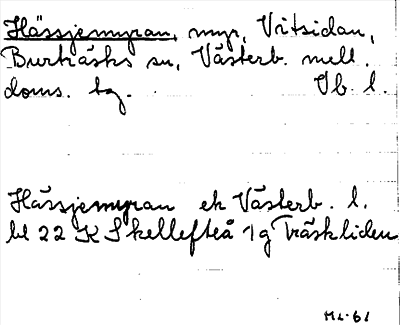 Hässjemyran, myr, Vritsidan,
Burträsks sn, Västerb. mell.
doms. tg. Vb. l.
Hässjemyran ek Västerb. l.
bl 22 K Skellefteå 1g Träskliden
ML-61